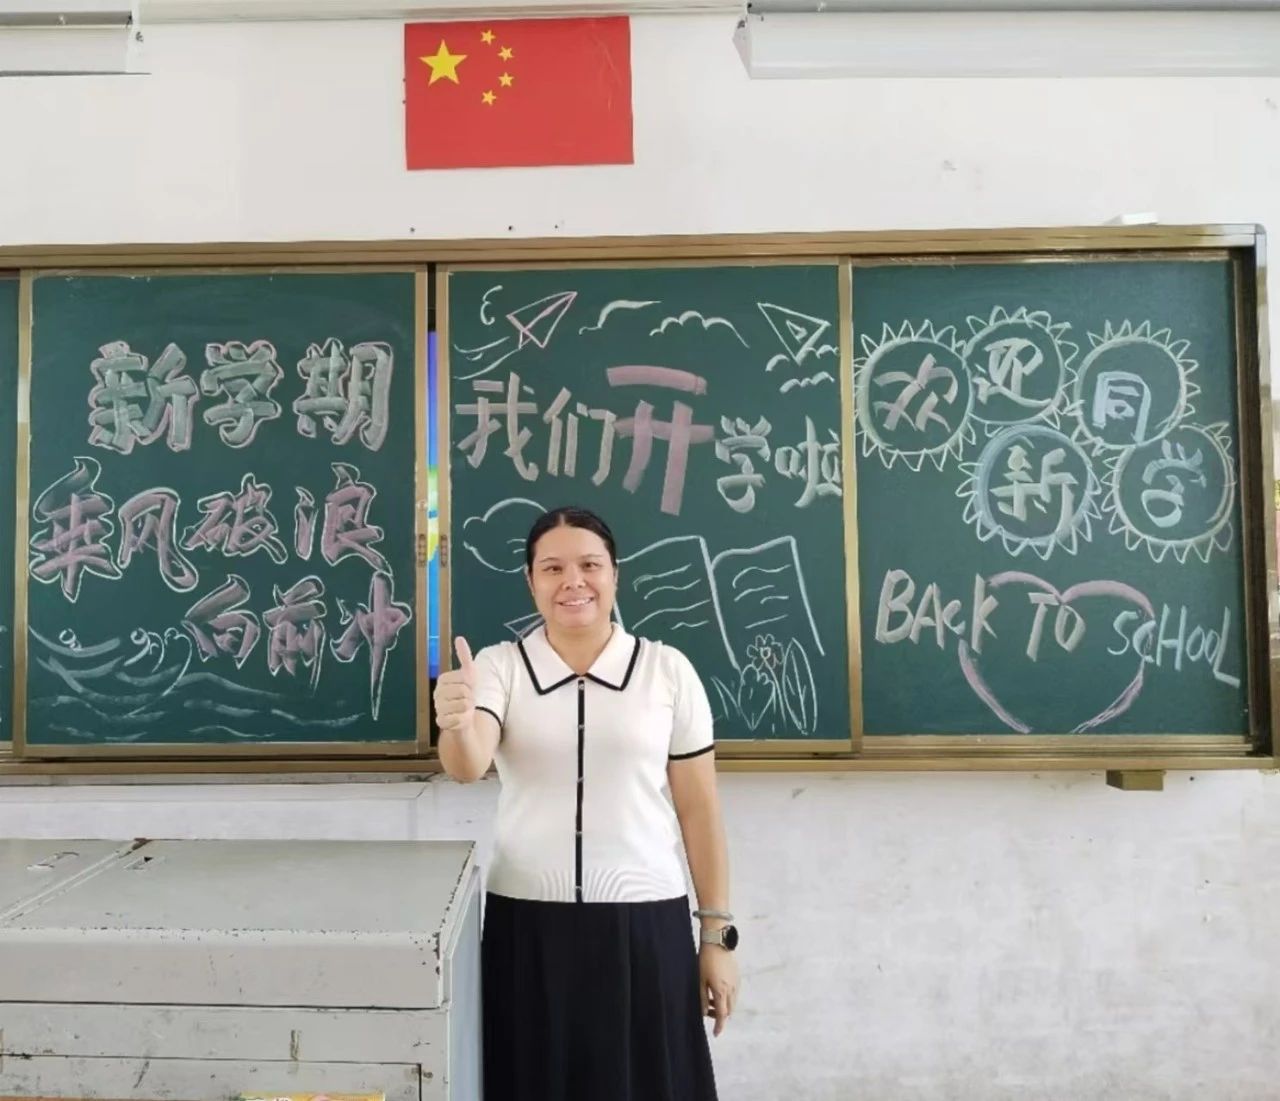 新学期
乘风破浪
向前冲
我们开学啦
欢迎同
新学
BAcK TO ScHOOL